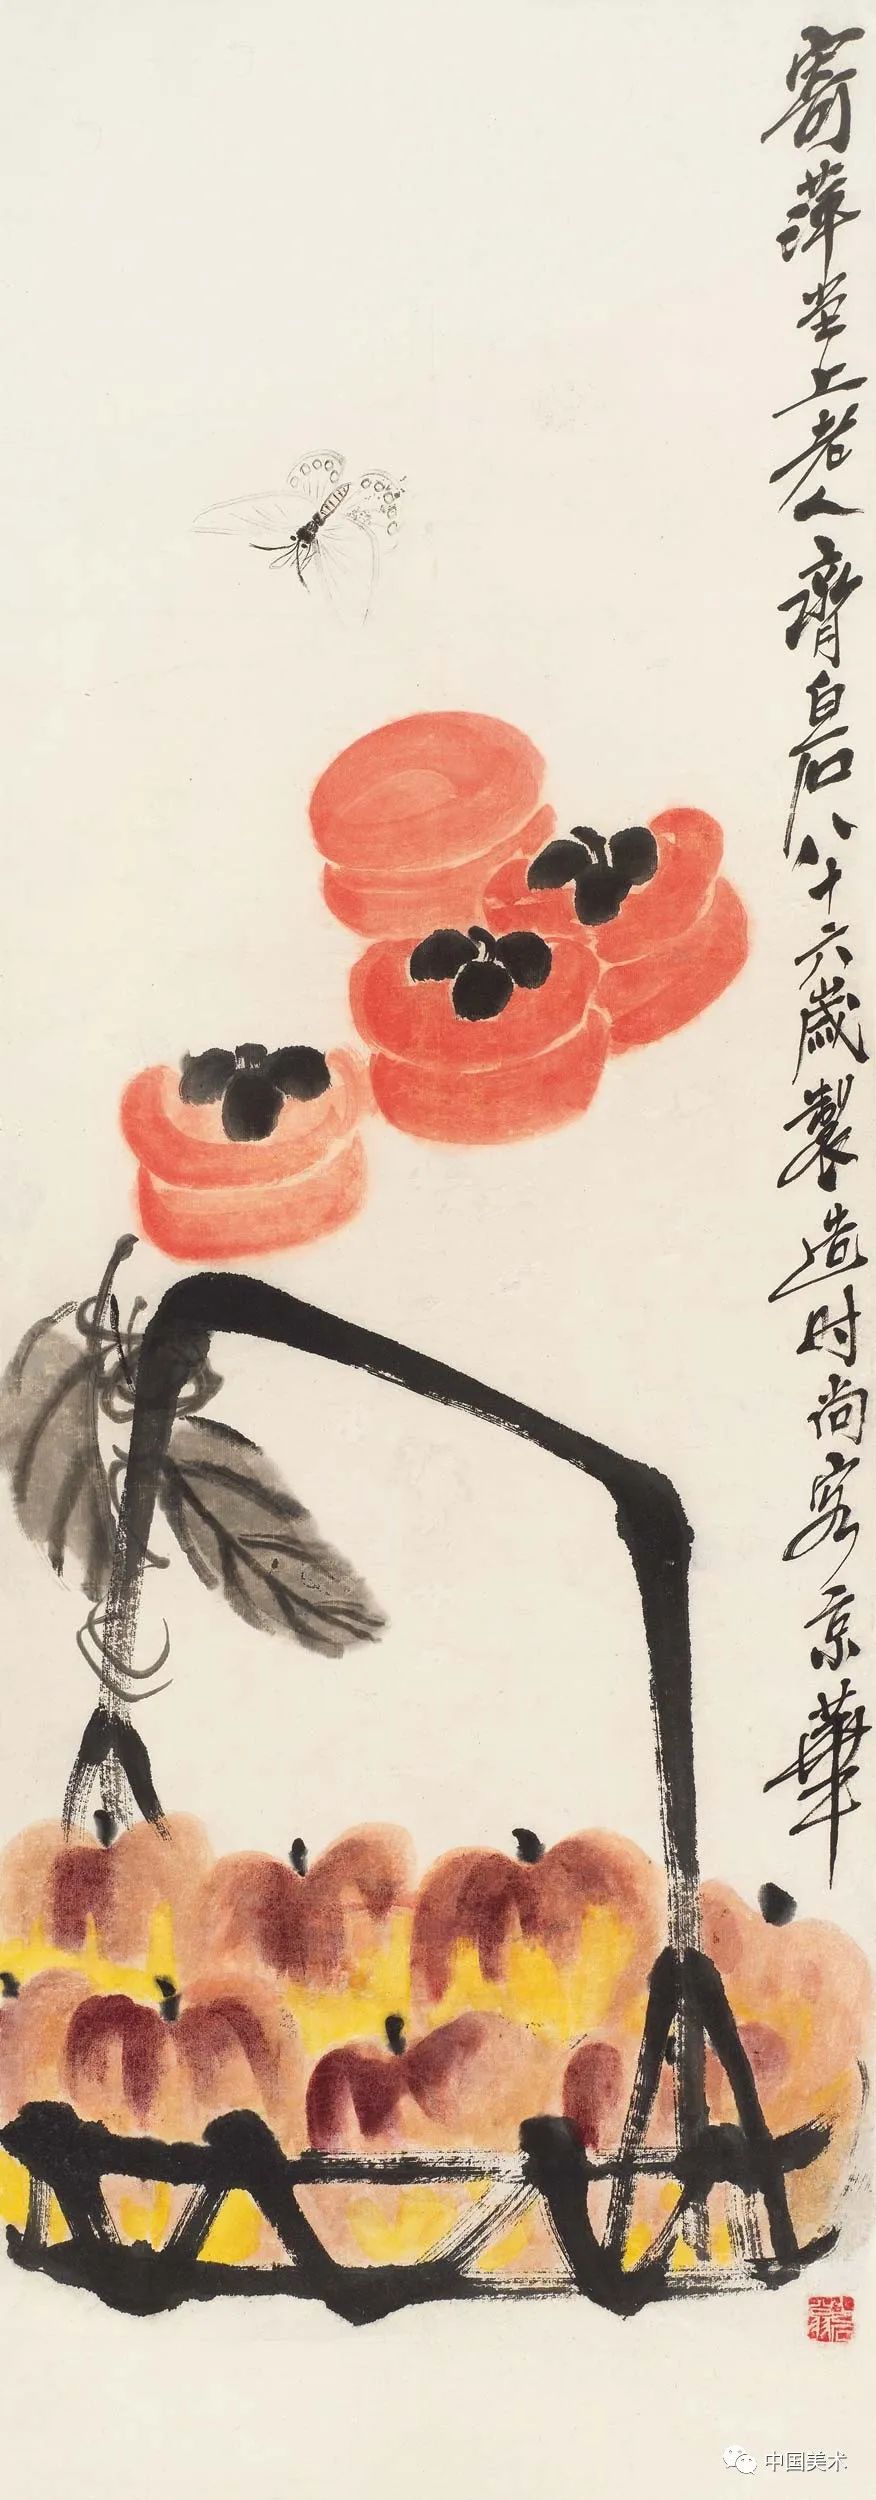 寄萍堂上老人齊白石八十六歲製造时尚客京華
白石翁
中国美术